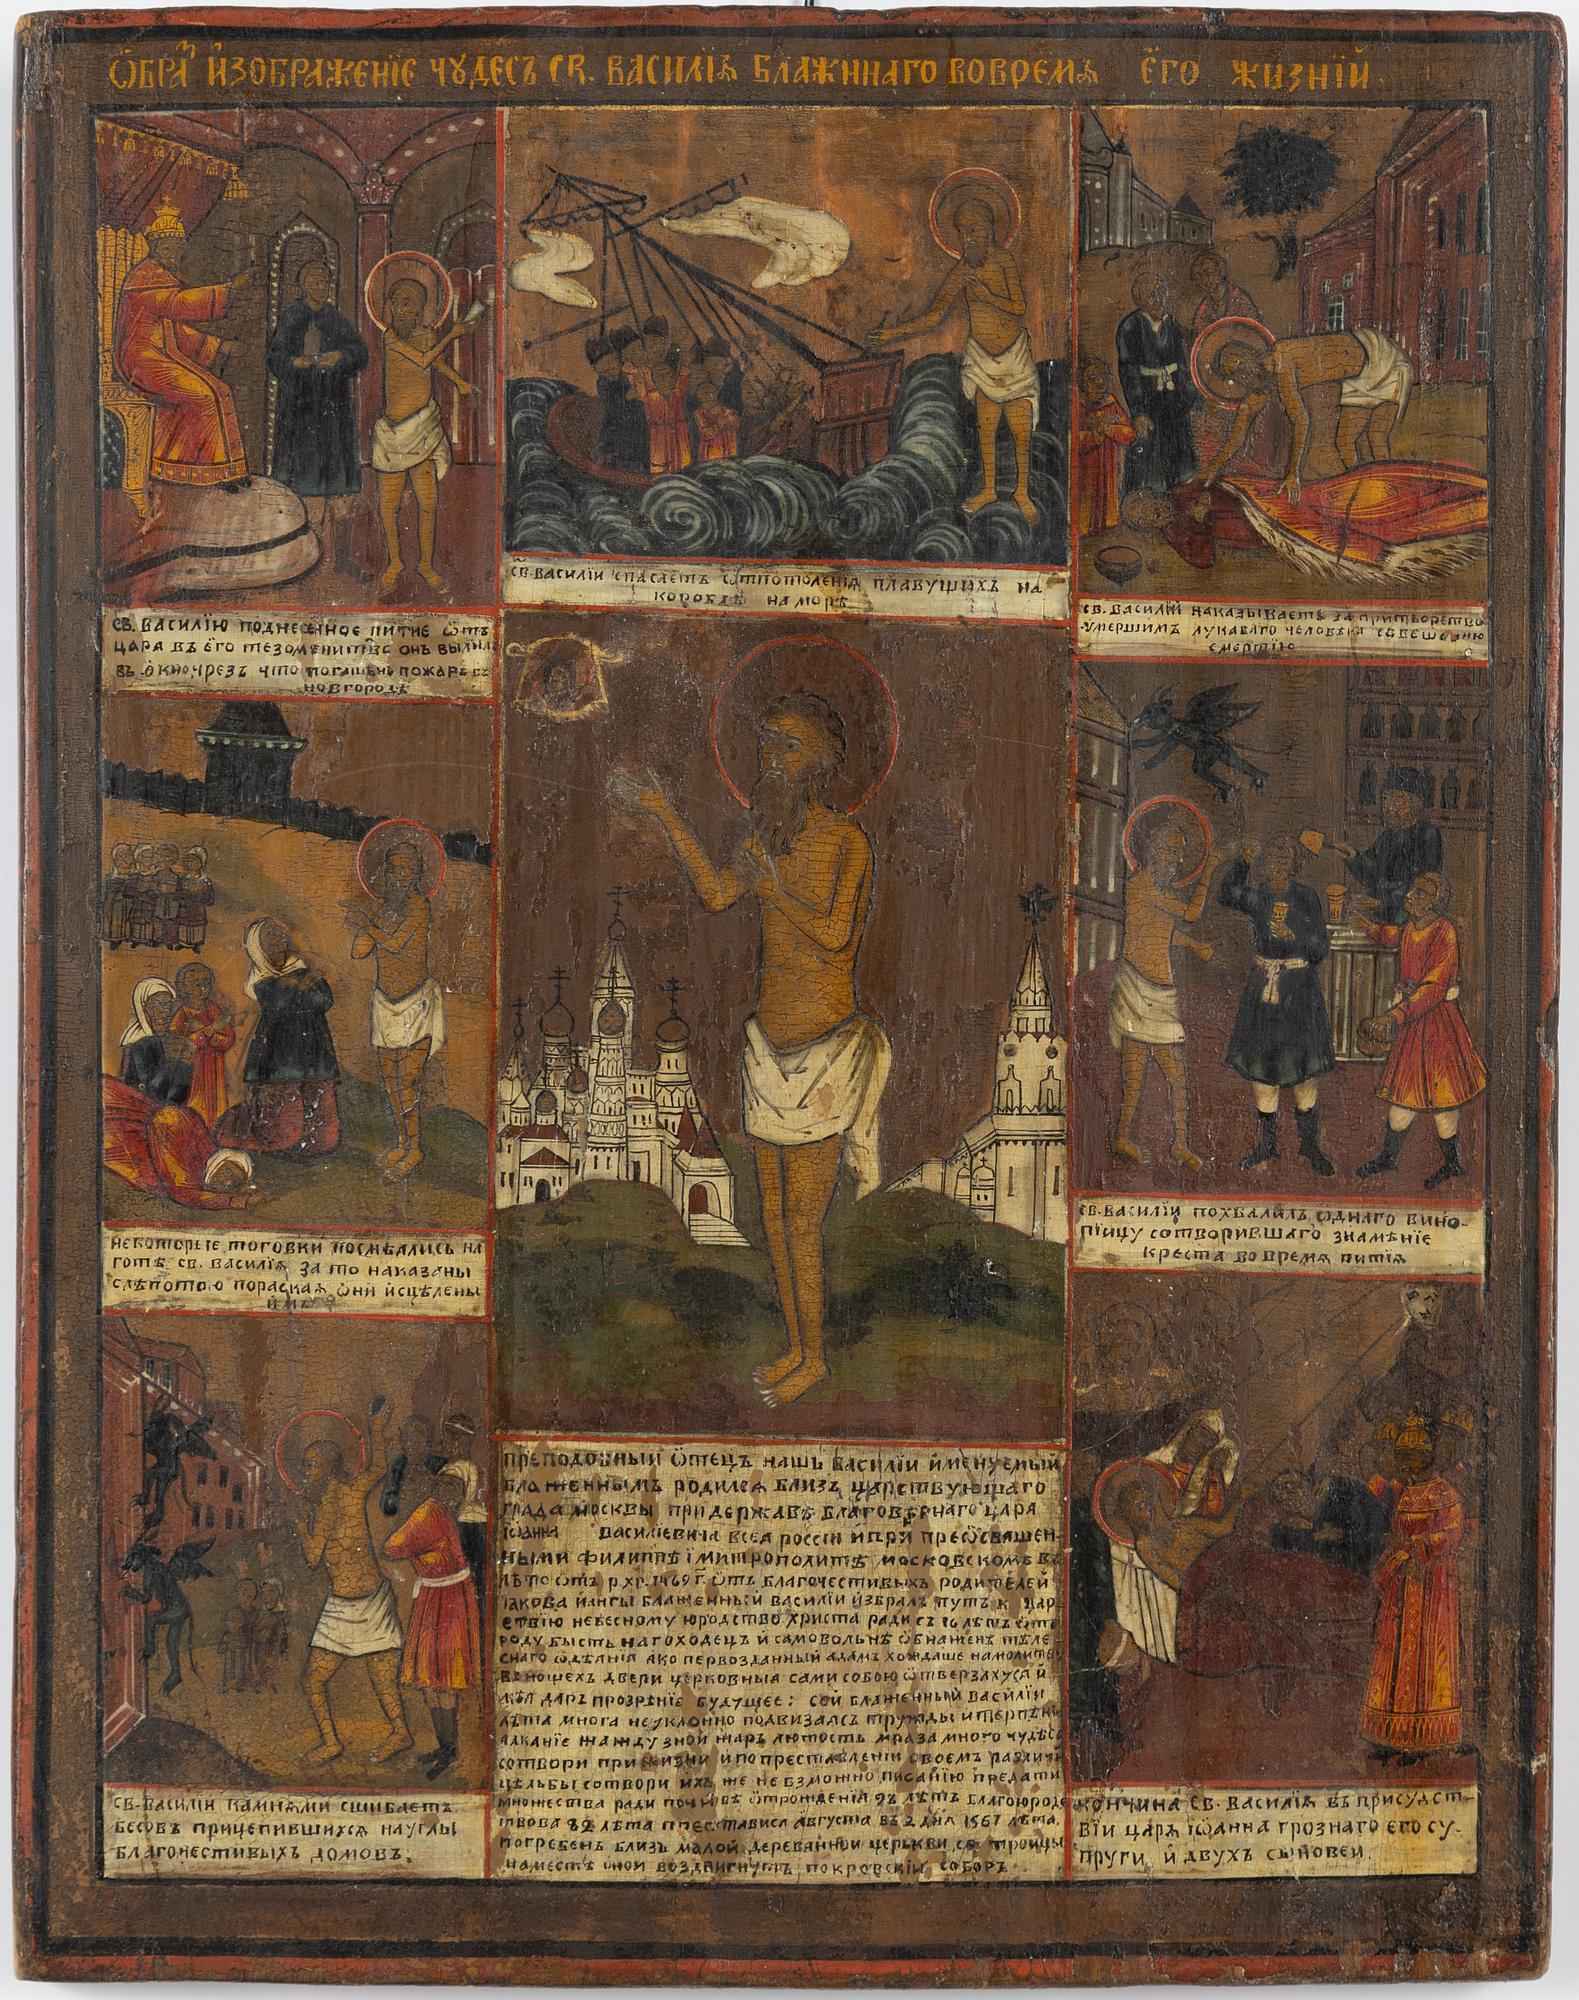 ѾБРАⷥ И҆ЗОБРАЖЕНЇЕ ЧꙊДЕСЪ СВ. ВАСИЛІѦ БЛАЖННАГО ВОВРЕМѦ Е҆ГО ЖИЗНЇЙ.
СВ. ВАСИЛЇЮ ПОДНЕСЕННОЕ ПИТИЕ Ѿ҆ТЪ
ЦАРА ВЪ ЕГО ТЕЗОМЕНИТВС ОНЪ ВЫЛИЛЪ
ВЪ ОКНО ЧРЕЗЪ ЧТО ПОГАШЕНЪ ПОЖАРЪ ВЪ
НОВГОРОДѢ
СВ. ВАСИЛІИ СПАСАЕТЪ ПЛАВУЩИХЪ НА
КОРОБЛѢ НА МОРѢ
СВ. ВАСИЛІЙ НАКАЗЫВАЕТЪ ЗА ПРИТВОРСТВО
УМЕРШИМЪ ЛУКАВАГО ЧЕЛОВѢКА
СМЕРТІЮ
НЕКОТОРЫЕ ТОГОВКИ ПОСМѢАЛИСЬ НА
ГОТѢ СВ. ВАСИЛІѦ ЗА ТО НАКАЗАНЫ
СЛѢПОТОЮ ПОРАСКАѦ ѠНИ ИСЦѢЛЕНЫ
ИМЪ
СВ. ВАСИЛІИ ПОХВАЛИЛЪ ѠДНАГО ВИНО-
ПІЙЦУ СОТВОРИВШАГО ЗНАМѢНІЕ
КРЕСТА ВО ВРЕМѦ ПИТІѦ
СВ. ВАСИЛІИ КАМНѦМИ СШИБАЕТЪ
БЕСОВЪ ПРИЦЕПИВШИХСѦ НА УГЛЫ
БЛАГОЧЕСТИВЫХЪ ДОМОВЪ.
ПРЕПОДОБНЫЙ ѾТЕЦЪ НАШЪ ВАСИЛІИ ИМЕНУЕМЫЙ
БЛАЖЕННЫМЪ РОДИЛСѦ БЛИЗЪ ЦАРСТВУЮЩАГО
ГРАДА МОСКВЫ ПРИ ДЕРЖАВѢ БЛАГОВѢРНАГО ЦАРА
ІѠАННА ВАСИЛІЕВИЧА ВСЕА РОССІИ И ПРИ ПРЕѠСВЯЩЕН-
НЫМИ ФИЛИППѢ МИТРОПОЛИТѢ МОСКОВСКОМЪ ВЪ
ЛѢТО ѾТЪ Р.ХР. 1469 Г. ѾТЪ БЛАГОЧЕСТИВЫХЪ РОДИТЕЛЕЙ
ІАКОВА И АННЫ БЛАЖЕННЫЙ ВАСИЛІИ ИЗБРАЛЪ ПУТЬ К ЦАР
СТВІЮ НЕБЕСНОМУ ЮРОДСТВО ХРИСТА РАДИ СЪ 16 ЛѢТЪ ѾТЪ
РОДУ БЫСТЬ НАГОХОДЕЦЪ И САМОВОЛЬНѢ ѠБНАЖЕНЪ ТѢЛЕ-
СНАГО ѠДѢАНІА АКО ПЕРВОЗДАННЫЙ АДАМЪ ХОЖДАШЕ НА МОЛИТВУ
ВЪ НОЩЕХЪ ДВЕРИ ЦЕРКОВНЫА САМИ СОБОЮ ѾТВЕРЗАХУСА И
ДАРЪ ПРОЗРѢНІЕ БУДУЩЕЕ: СЕЙ БЛАЖЕННЫЙ ВАСИЛІИ
ЛѢТА МНОГА НЕУКЛОННО ПОДВИЗАЛСЪ ТРУЖДЫ И ТЕРПѢНІЕ
АЛКАНІЕ ЖАЖДУ ЗНОЙ ЖАРЪ ЛЮТОСТЬ МРАЗА МНОГО ЧУДЕСЪ
СОТВОРИ ПРИ ЖИЗНИ И ПО ПРЕСТАВЛЕНІИ СВОЕМЪ РАЗЛИЧИ
ЦѢЛЬБЫ СОТВОРИ ИХЪ ЖЕ НЕ ВЗМОЖНО ПИСАНІЮ ПРЕДАТИ
МНОЖЕСТВА РАДИ ПОЧИ ВЪ ѾТРОЖДЕНІЯ 92 ЛѢТЪ
82 ЛѢТА ПРЕСТАВИСА АВГУСТА ВЪ 2 ДНЯ 1567 ЛѢТА.
ПОГРЕБЕНЪ БЛИЗЪ МАЛОЙ ДЕРЕВАННОЙ ЦЕРЬКВИ СВ. ТРОИЦЫ
НАМЕСТѢ ѠНОЙ ВОЗДВИГНУТЪ ПОКРОВСКІЙ СОБОРЪ
КОНЧИНА СВ. ВАСИЛІѦ ВЪ ПРИСУДСТ-
ВІИ ЦАРЯ ІѠАННА ГРОЗНАГО ЕГО СУ-
ПРУГИ И ДВУХЪ СЫНОВЕЙ.